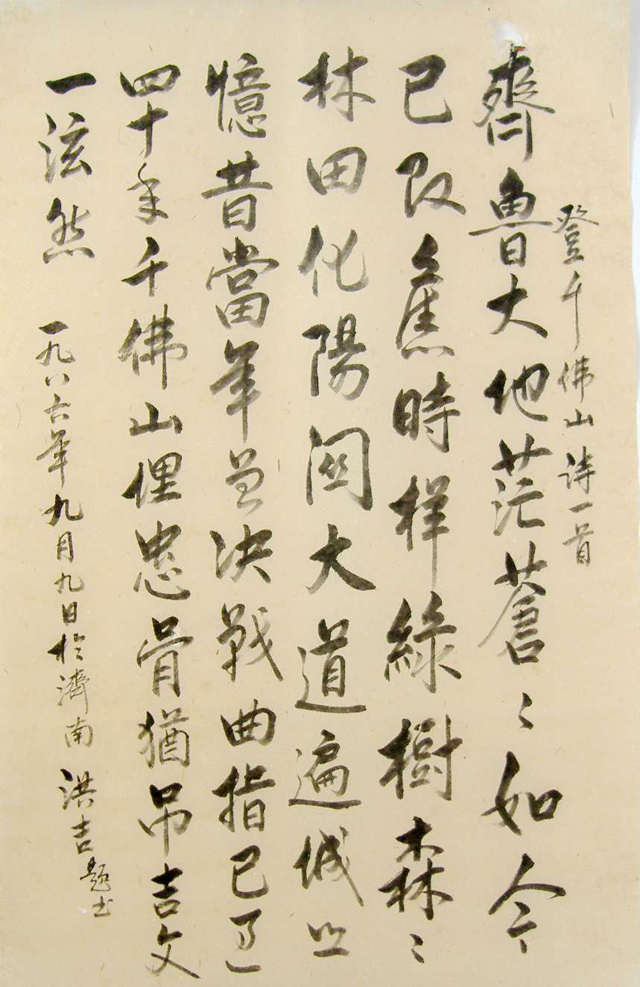 登千佛山诗一首
齊魯大地茫蒼〻如今
已改舊時样綠樹森〻
林田化陽関大道遍城
憶昔當年曾决戰曲指已过
四十年千佛山俚忠骨猶吊吉文
一泫然
一九八六年九月九日於濟南 洪吉題书